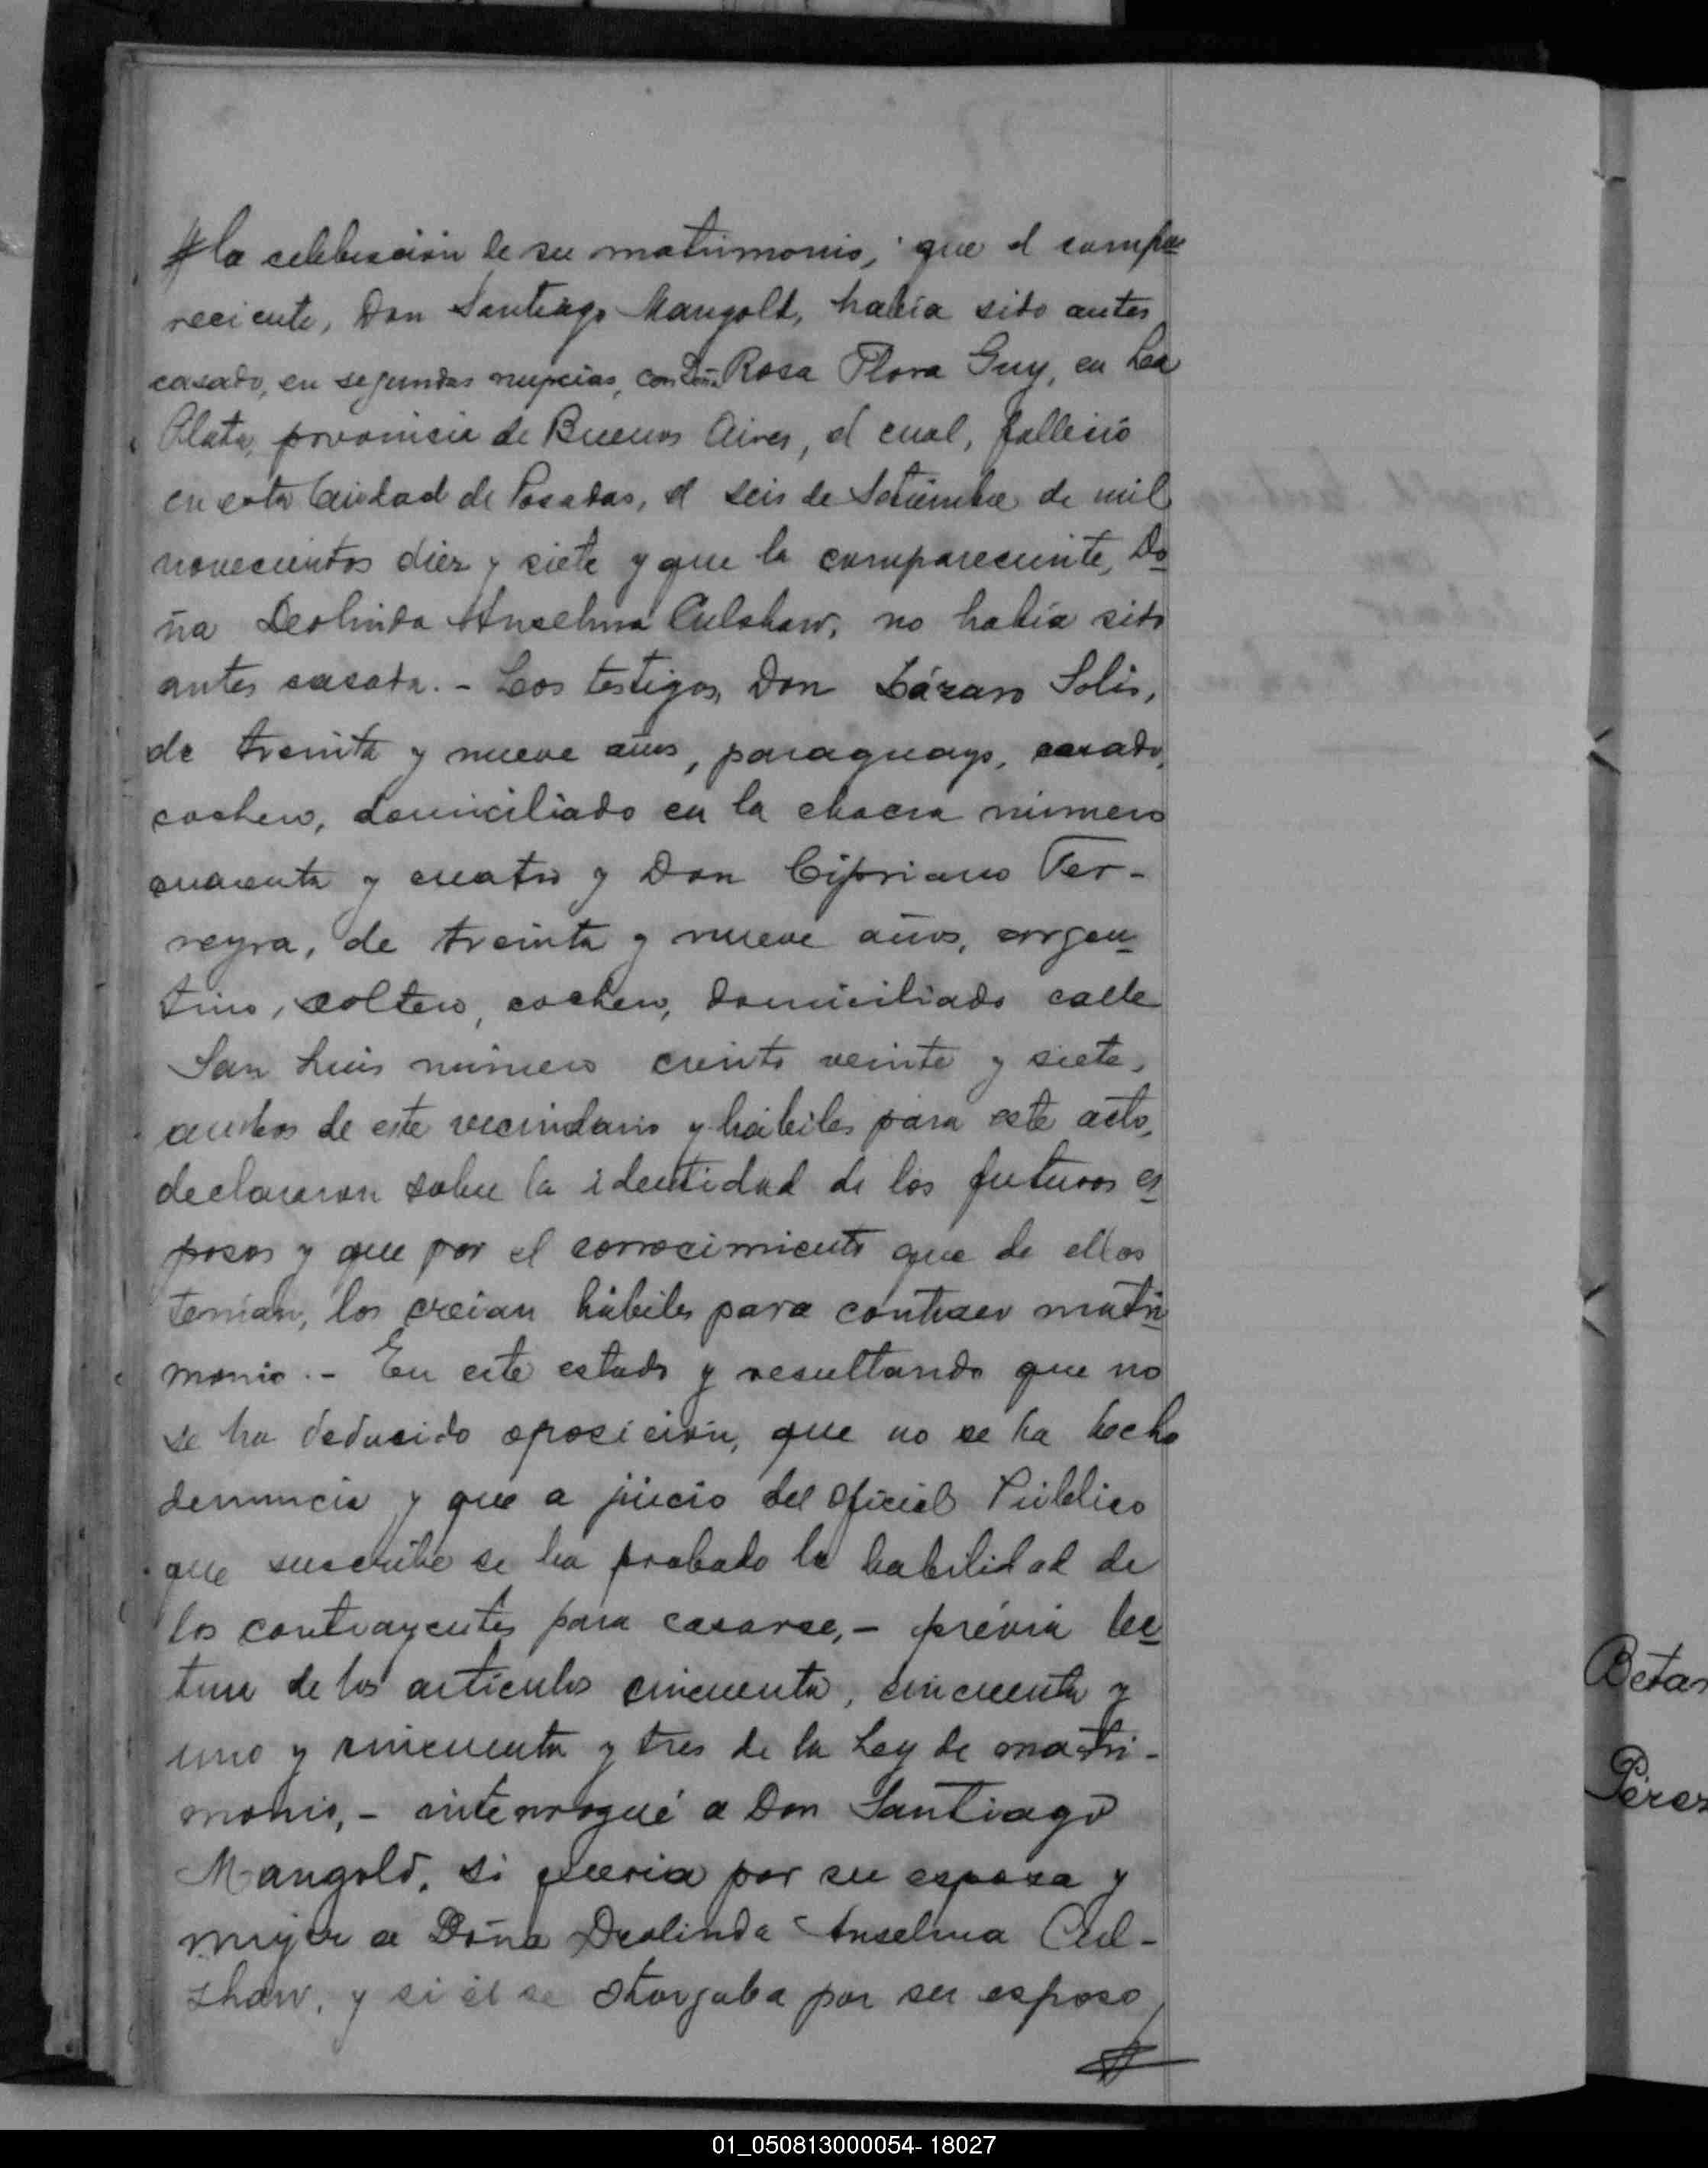 la celebración de su matrimonio, que el compa
reciente, Don Santiago Mangold, había sido antes
casado, en segundas nupcias, con Doña Rosa Flora Guy, en La
Plata, provincia de Buenos Aires, el cual, falleció
en esta Ciudad de Posadas, el seis de Setiembre de mil
novecientos diez y siete y que la compareciente, Do
ña Deolinda Anselma Culshaw, no había sido
antes casada. - Los testigos, Don Lázaro Solis,
de treinta y nueve años, paraguayo, casado,
cochero, domiciliado en la chacra número
cuarenta y cuatro y Don Cipriano Fer-
reyra, de treinta y nueve años, argen
tino, soltero, cochero, domiciliado calle
San Luis número ciento veinte y siete,
ambos de este vecindario y hábiles para este acto,
declararon sobre la identidad de los futuros es
posos y que por el conocimiento que de ellos
tenían, los creían hábiles para contraer matri
monio. - En este estado y resultando que no
se ha deducido oposición, que no se ha hecho
denuncia y que a juicio del Oficial Público
que suscribe se ha probado la habilidad de
los contrayentes para casarse, - prévia lec
tura de los artículos cincuenta, cincuenta y
uno y cincuenta y tres de la Ley de matri-
monio, - interrogué a Don Santiago
Mangold, si quería por su esposa y
mujer a Doña Deolinda Anselma Cul-
shaw, y si él se otorgaba por su esposo
Pérez
01_050813000054- 18027